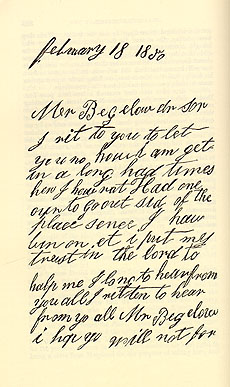 february 18 1850
Mr Begelow dr Ser
I rit to you to let
you no how I am get
in a long had times
here I hav not Had one
our to go out sid of the
place sence I hav
bin on et i put my
trust in the lord to
halp me I long to hear from
you all I ritten to hear
from yo all Mr Begelow
i hop yo will not for